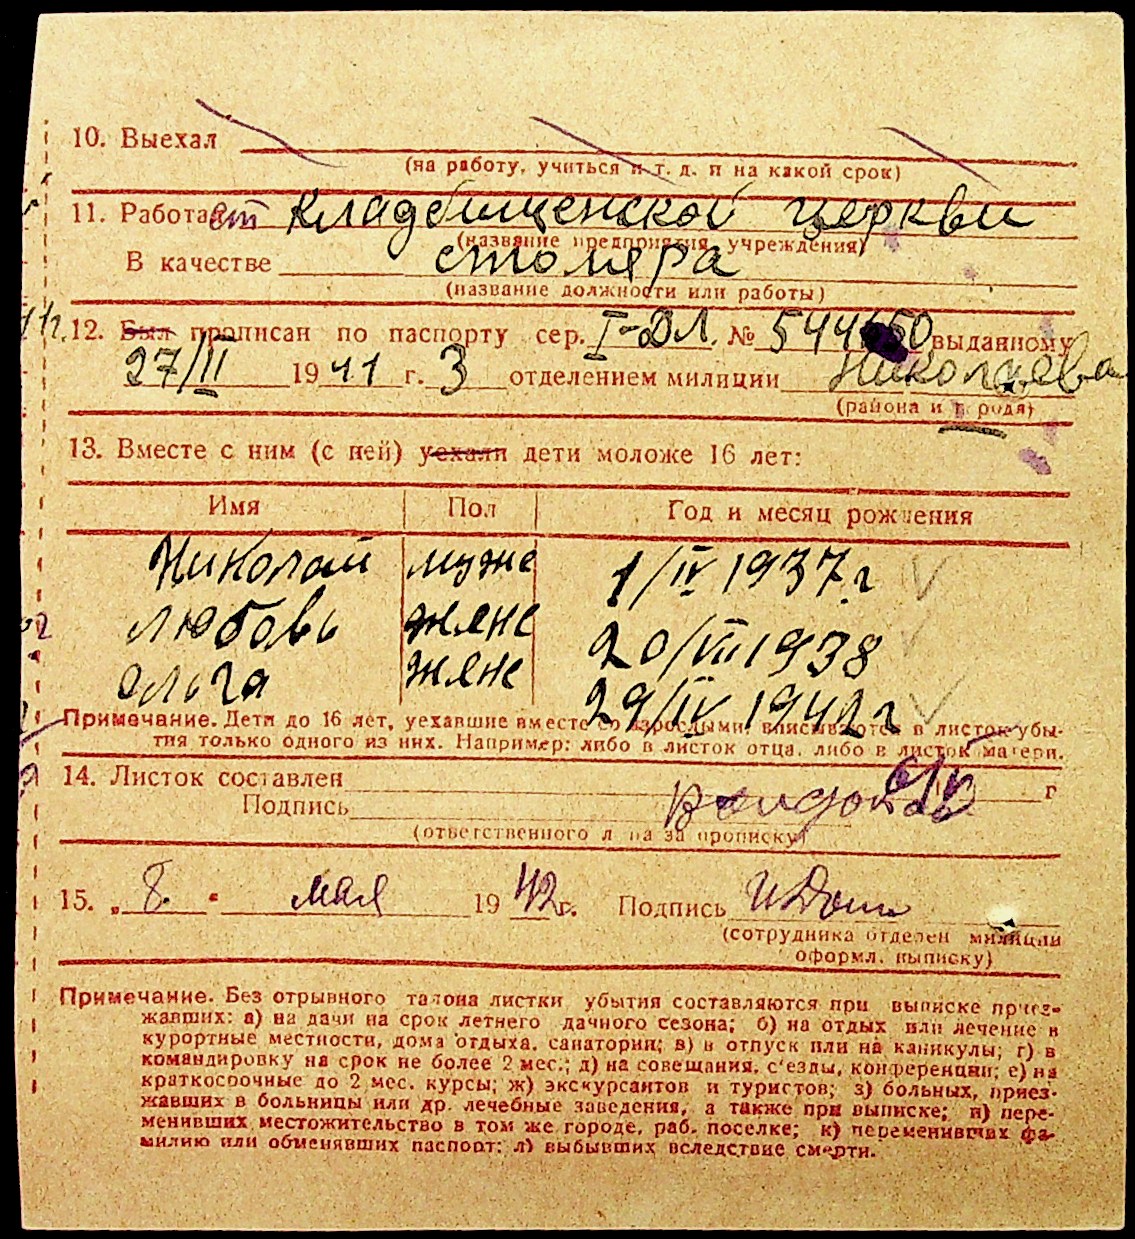 10. Выехал
(на работу, учиться и т. д. и на какой срок)
11. Работает Кладбищенской церкви
(название предприятия, учреждения)
В качестве столяра
(название должности или работы)
12. Был прописан по паспорту сер. I-ДЛ. № 544 50 выданному
27/III 1941 г. 3 отделением милиции Николаева
(района и города)
13. Вместе с ним (с ней) уехали дети моложе 16 лет:
Имя Пол Год и месяц рождения
Николай муже 1/IV 1937 г
Любовь жене 20/VII 1938
Ольга жене 29/IV 1941 г
Примечание. Дети до 16 лет, уехавшие вместе со взрослыми, вписываются в листок убы-
тия только одного из них. Например: либо в листок отца, либо в листок матери.
14. Листок составлен г
Подпись
(ответственного лица за прописку)
15. „ 8. " мая 1942 г. Подпись
(сотрудника отделен милиции
оформл. выписку)
Примечание. Без отрывного талона листки убытия составляются при выписке приез-
жавших: а) на дачи на срок летнего дачного сезона; б) на отдых или лечение в
курортные местности, дома отдыха, санатории; в) в отпуск или на каникулы; г) в
командировку на срок не более 2 мес.; д) на совещания, с'езды, конференции; е) на
краткосрочные до 2 мес. курсы; ж) экскурсантов и туристов; з) больных, приез-
жавших в больницы или др. лечебные заведения, а также при выписке; и) пере-
менивших местожительство в том же городе, раб. поселке; к) переменивших фа-
милию или обменявших паспорт; л) выбывших вследствие смерти.